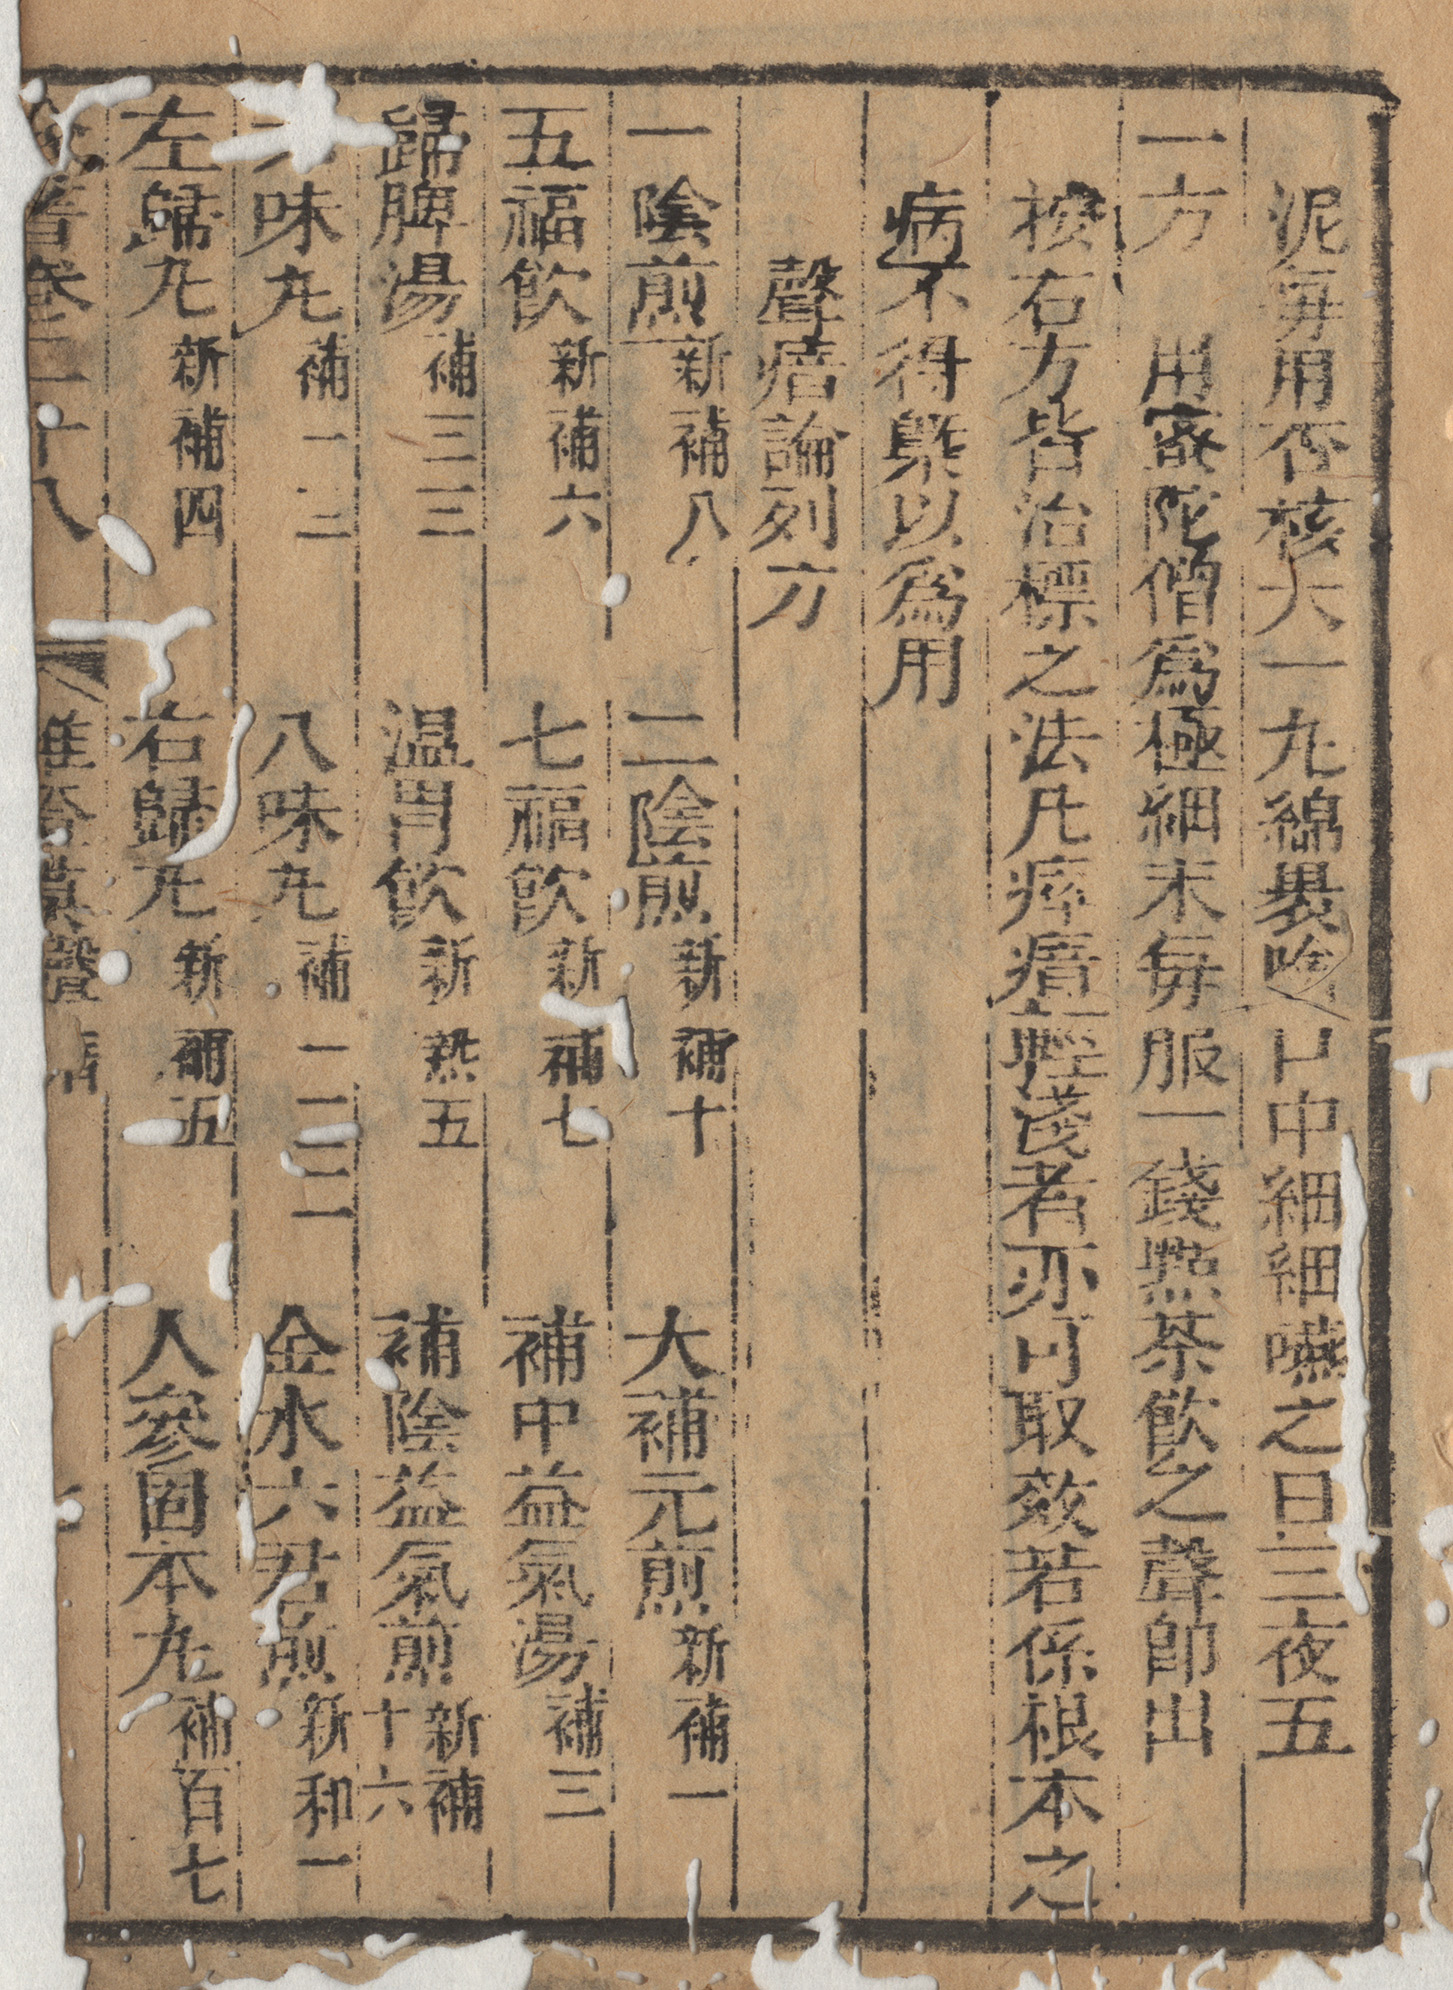 泥每用杏核大一丸綿褁噙口中細細嚥之日三夜五
一方　用密陀僧爲極細末每服一錢㸃茶飲之聲卽出
按右方皆治標之法凡痺瘖輕淺者亦可取效若係根本之
病不得槩以爲用
聲瘖論列方
一陰煎新補八　二陰煎新補十　大補元煎新補一
五福飲新補六　七福飲新補七　補中益氣湯補三
歸脾湯補三二　温胃飲新熱五　補陰益氣煎新補十六
味丸補一二　八味丸補一二一　金水六君煎新和一
左歸丸新補四　右歸丸新補五　人參固本丸補百七
卷二十八　聲瘖